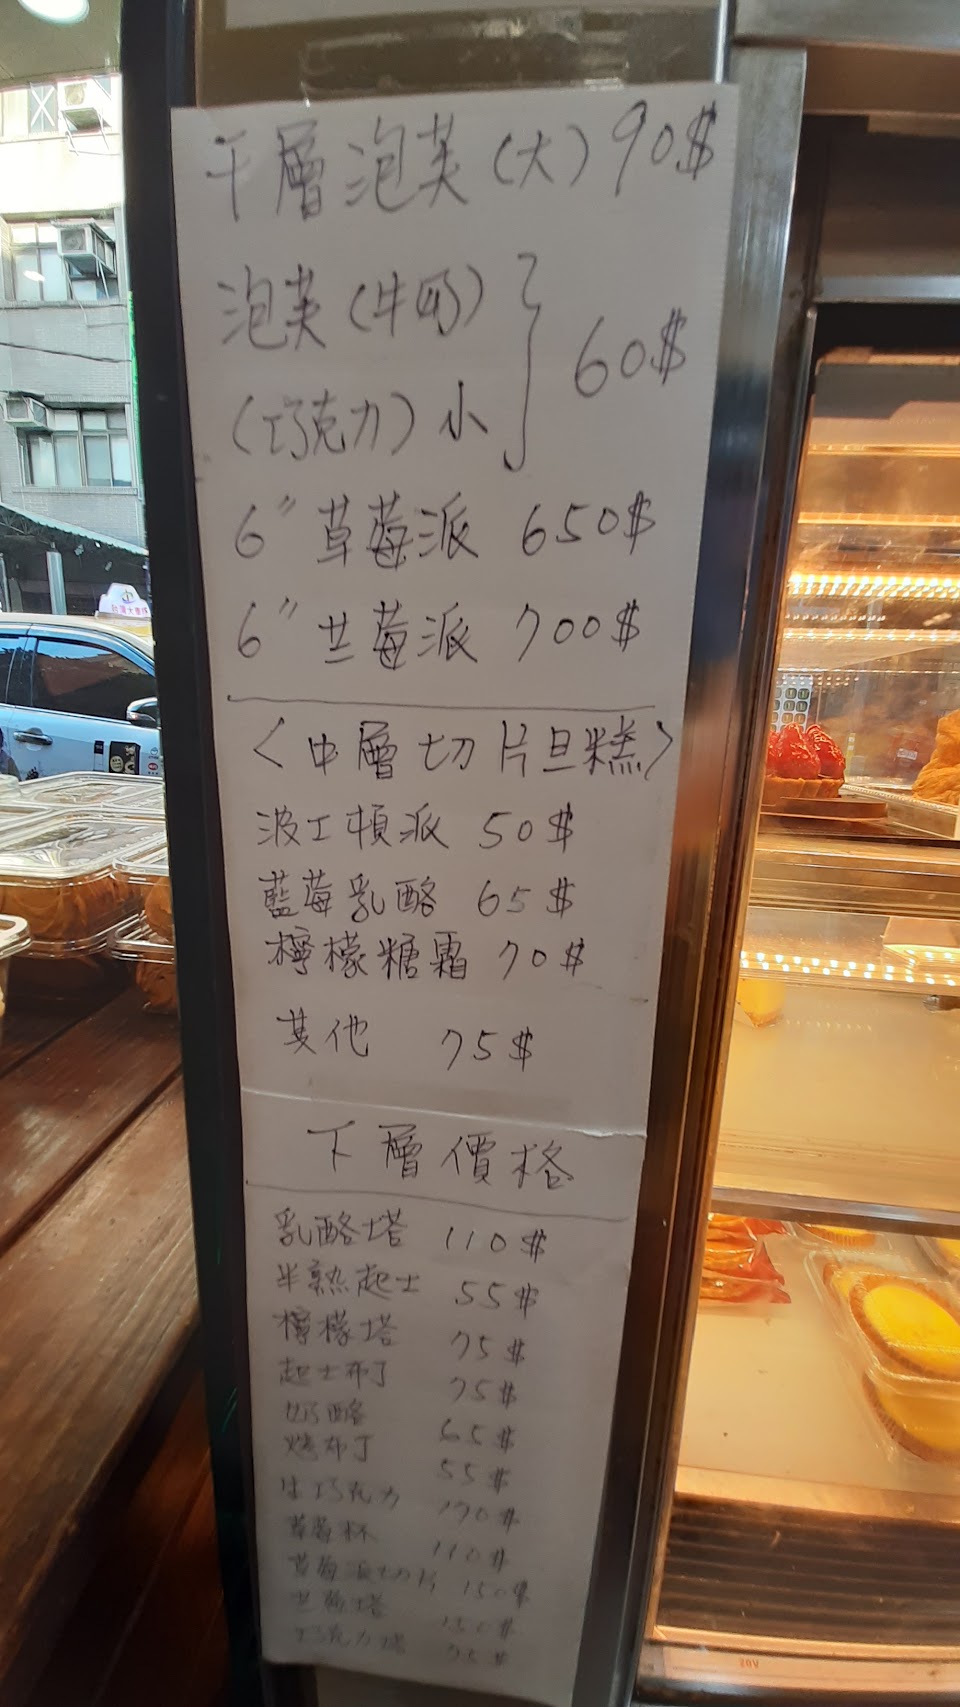 千層泡芙(大) 90$
泡芙(牛奶)
(巧克力)小 } 60$
6" 草莓派 650$
6" 兰莓派 700$
<中層切片旦糕>
波士頓派 50$
藍莓乳酪 65$
檸檬糖霜 70$
其他 75$
下層價格
乳酪塔 110$
半熟起士 55$
檸檬塔 75$
起士布丁 75$
奶酪 65$
烤布丁 55$
生巧克力 170$
草莓杯 110$
草莓派切片 150$
兰莓塔 150$
巧克力塔 75$